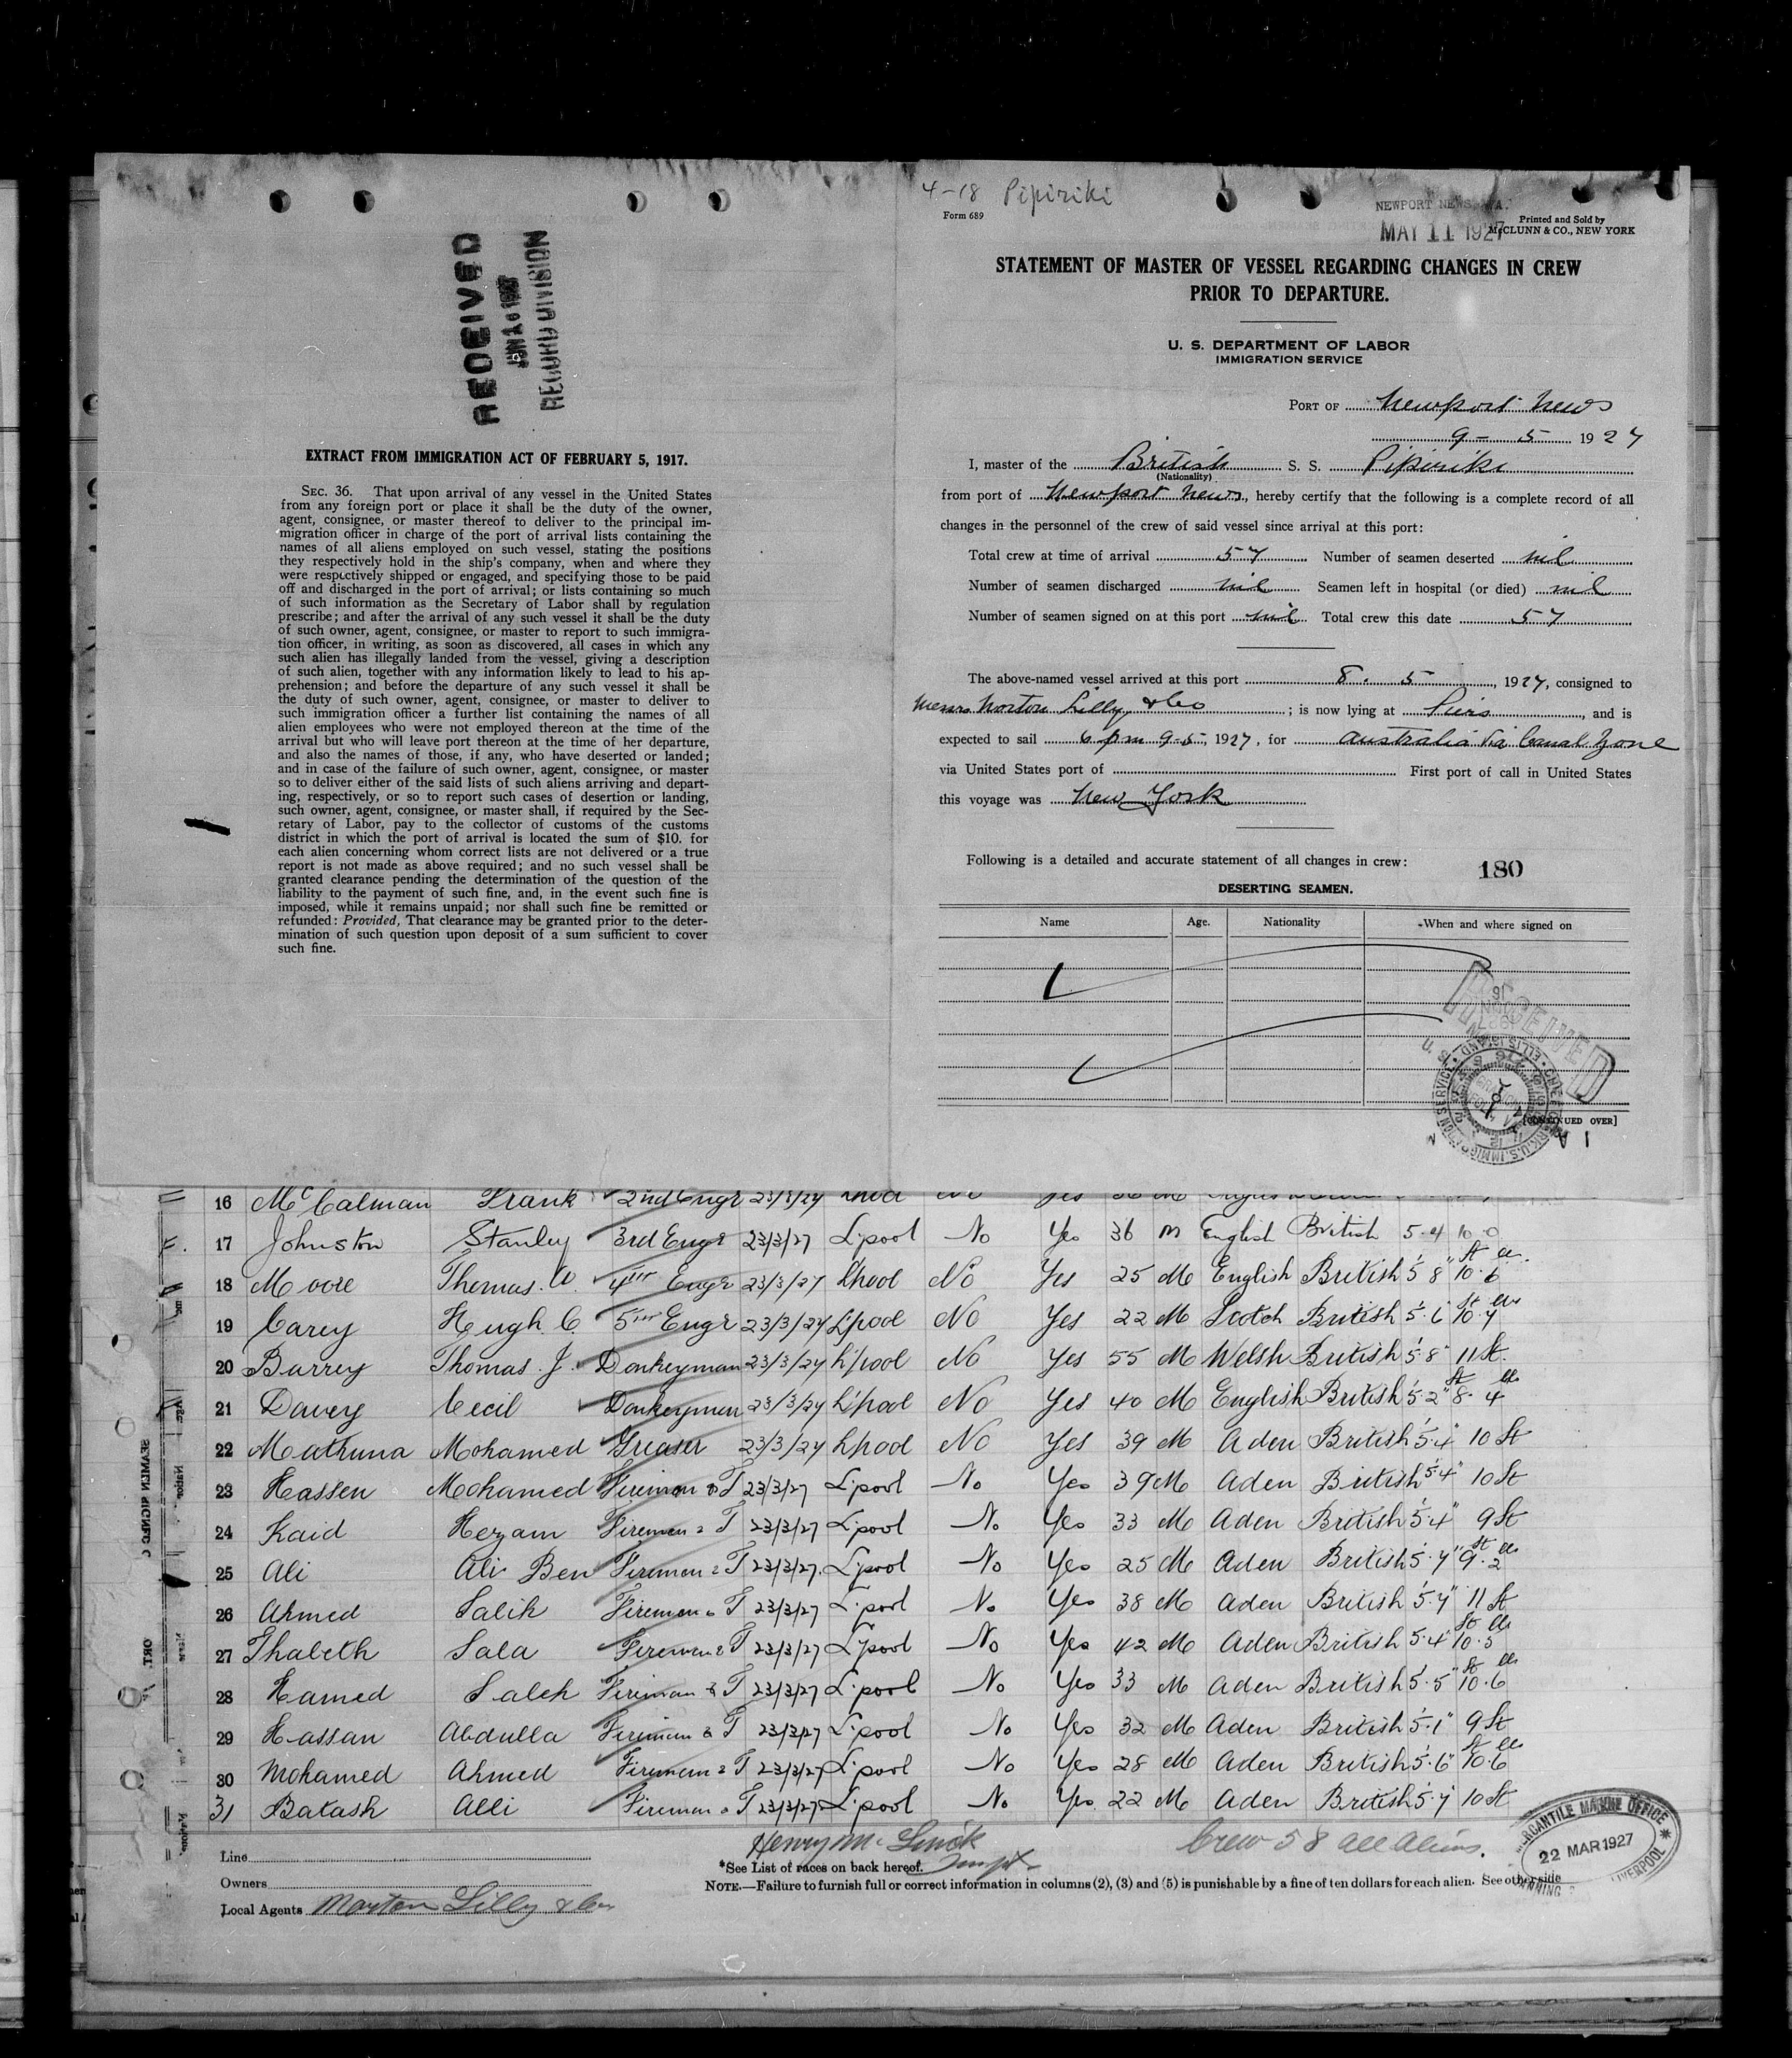 RECEIVED
RECORD DIVISION
EXTRACT FROM IMMIGRATION ACT OF FEBRUARY 5, 1917.
SEC. 36. That upon arrival of any vessel in the United States
from any foreign port or place it shall be the duty of the owner,
agent, consignee, or master thereof to deliver to the principal im-
migration officer in charge of the port of arrival lists containing the
names of all aliens employed on such vessel, stating the positions
they respectively hold in the ship's company, when and where they
were respectively shipped or engaged, and specifying those to be paid
off and discharged in the port of arrival; or lists containing so much
of such information as the Secretary of Labor shall by regulation
prescribe; and after the arrival of any such vessel it shall be the duty
of such owner, agent, consignee, or master to report to such immigra-
tion officer, in writing, as soon as discovered, all cases in which any
such alien has illegally landed from the vessel, giving a description
of such alien, together with any information likely to lead to his ap-
prehension; and before the departure of any such vessel it shall be
the duty of such owner, agent, consignee, or master to deliver to
such immigration officer a further list containing the names of all
alien employees who were not employed thereon at the time of the
arrival but who will leave port thereon at the time of her departure,
and also the names of those, if any, who have deserted or landed;
and in case of the failure of such owner, agent, consignee, or master
so to deliver either of the said lists of such aliens arriving and depart-
ing, respectively, or so to report such cases of desertion or landing,
such owner, agent, consignee, or master shall, if required by the Sec-
retary of Labor, pay to the collector of customs of the customs
district in which the port of arrival is located the sum of $10. for
each alien concerning whom correct lists are not delivered or a true
report is not made as above required; and no such vessel shall be
granted clearance pending the determination of the question of the
liability to the payment of such fine, and, in the event such fine is
imposed, while it remains unpaid; nor shall such fine be remitted or
refunded: Provided, That clearance may be granted prior to the deter-
mination of such question upon deposit of a sum sufficient to cover
such fine.
4-18 Pipiriki
Form 689
NEWPORT NEWS, VA.
MAY 11 1927
Printed and Sold by
McCLUNN & CO., NEW YORK
STATEMENT OF MASTER OF VESSEL REGARDING CHANGES IN CREW
PRIOR TO DEPARTURE.
U. S. DEPARTMENT OF LABOR
IMMIGRATION SERVICE
PORT OF Newport News
9 - 5 1927
I, master of the British S. S. Pipiriki
(Nationality)
from port of Newport News, hereby certify that the following is a complete record of all
changes in the personnel of the crew of said vessel since arrival at this port:
Total crew at time of arrival 57 Number of seamen deserted nil
Number of seamen discharged nil Seamen left in hospital (or died) nil
Number of seamen signed on at this port nil Total crew this date 57
The above-named vessel arrived at this port 8. 5, 1927, consigned to
Messrs Norton Lilly & Co; is now lying at Piers, and is
expected to sail 6 pm 9-5, 1927, for Australia via Canal Zone
via United States port of First port of call in United States
this voyage was New York
Following is a detailed and accurate statement of all changes in crew: 180
DESERTING SEAMEN.
Name Age. Nationality When and where signed on
RECEIVED
[CONTINUED OVER]
16 McCalman Frank 2nd Engr 23/3/27
17 Johnston Stanley 3rd Engr 23/3/27 L'pool No Yes 36 M English British 5-4 10-0
18 Moore Thomas. W 4th Engr 23/3/27 L'pool No Yes 25 M English British 5' 8" 10 st 6 lbs
19 Carey Hugh. C. 5th Engr 23/3/27 L'pool No Yes 22 M Scotch British 5'-6" 10 st 7 lbs
20 Barrey Thomas. J. Donkeyman 23/3/27 L'pool No Yes 55 M Welsh British 5'-8" 11 St.
21 Davey Cecil Donkeyman 23/3/27 L'pool No Yes 40 M English British 5'-2" 8 st 4 lbs
22 Muthuna Mohamed Greaser 23/3/27 L'pool No Yes 39 M Aden British 5'4" 10 St
23 Hassen Mohamed Fireman & T 23/3/27 L'pool No Yes 39 M Aden British 5'4" 10 St
24 Kaid Hezam Fireman & T 23/3/27 L'pool No Yes 33 M Aden British 5'4" 9 St
25 Ali Ali Ben Fireman & T 23/3/27 L'pool No Yes 25 M Aden British 5'-7" 9 st 2 lbs
26 Ahmed Salih Fireman & T 23/3/27 L'pool No Yes 38 M Aden British 5'-7" 11 St
27 Thabeth Sala Fireman & T 23/3/27 L'pool No Yes 42 M Aden British 5'-4" 10 St 5 lbs
28 Hamed Saleh Fireman & T 23/3/27 L'pool No Yes 33 M Aden British 5'-5" 10 St 6 lbs
29 Hassan Abdulla Fireman & T 23/3/27 L'pool No Yes 32 M Aden British 5'-1" 9 St
30 Mohamed Ahmed Fireman & T 23/3/27 L'pool No Yes 28 M Aden British 5'-6" 10 st 6 lbs
31 Batash Alli Fireman & T 23/3/27 L'pool No Yes 22 M Aden British 5'-7" 10 St
Line
Owners
Local Agents Norton Lilly & Co
Crew 58 all Aliens.
*See List of races on back hereof.
NOTE.—Failure to furnish full or correct information in columns (2), (3) and (5) is punishable by a fine of ten dollars for each alien. See other side
MERCANTILE MARINE OFFICE
22 MAR 1927
LIVERPOOL